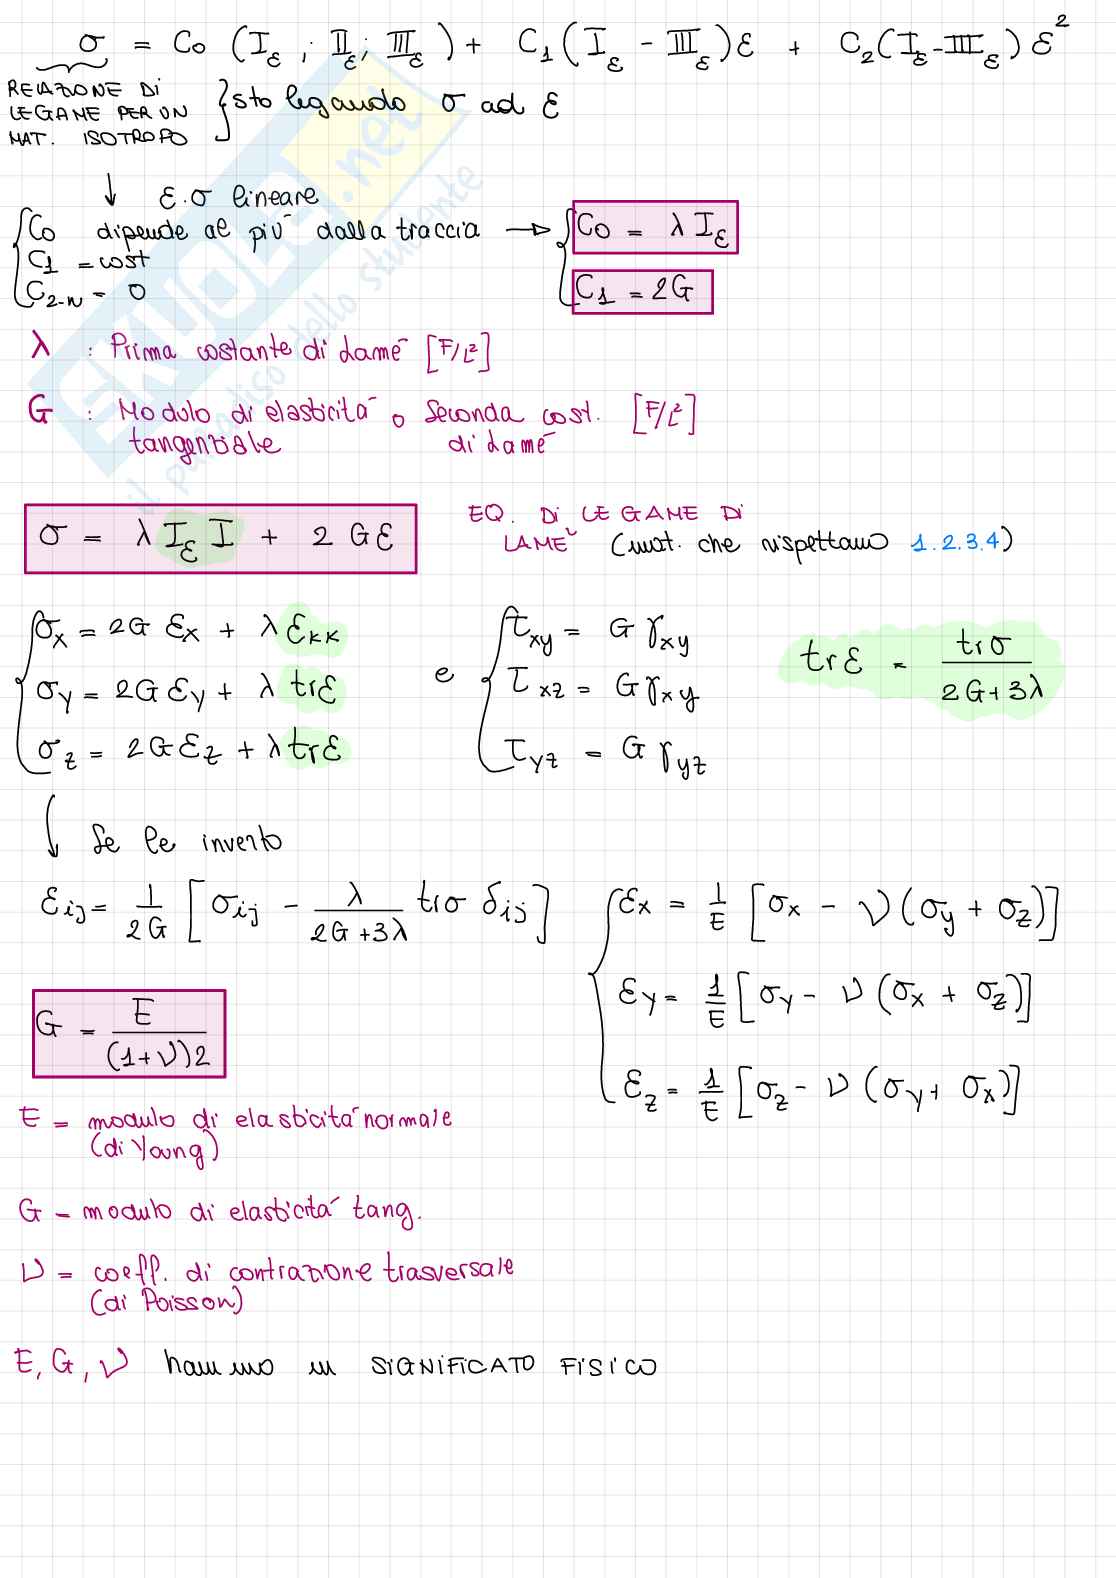 σ = C0 (Iε ; IIε ; IIIε) + C1 (Iε - IIIε) ε + C2 (Iε - IIIε) ε²
RELAZIONE DI LEGAME PER UN MAT. ISOTROPO } sto legando σ ad ε
↓ ε·σ lineare
{ C0 dipende al più dalla traccia → { C0 = λ Iε
C1 = cost
C2-N = 0 C1 = 2G
λ : Prima costante di Lamé [F/L²]
G : Modulo di elasticità o Seconda cost. [F/L²]
tangenziale di Lamé
σ = λ Iε I + 2 G ε
EQ. Di LEGAME Di
LAME' (mat. che rispettano 1.2.3.4)
σx = 2G εx + λ εkk
σy = 2G εy + λ trε
σz = 2G εz + λ trε
e
τxy = G γxy
τxz = G γxy
τyz = G γyz
trε = trσ / (2G + 3λ)
↓ Se le inverto
εij = 1/2G [σij - λ/(2G + 3λ) trσ δij]
εx = 1/E [σx - ν (σy + σz)]
εy = 1/E [σy - ν (σx + σz)]
εz = 1/E [σz - ν (σy + σx)]
G = E / (1+ν)2
E = modulo di elasticità normale
(di Young)
G = modulo di elasticità tang.
ν = coeff. di contrazione trasversale
(di Poisson)
E, G, ν hanno un SIGNIFICATO FISICO
SKUOLA.net
il paradiso dello studente